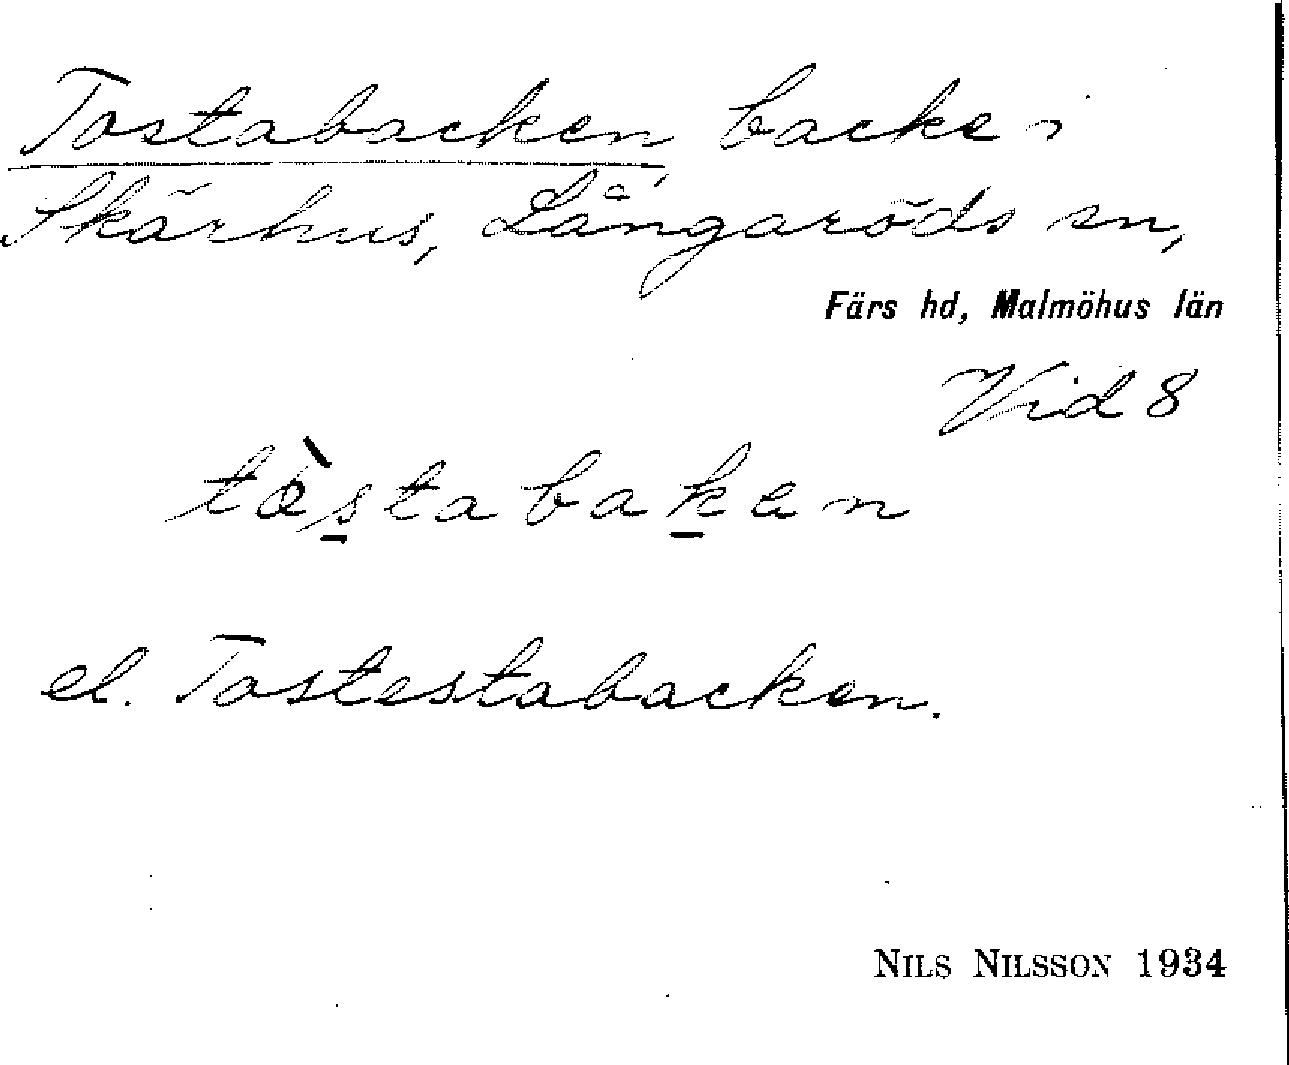 Tostabacken, backe i
Skärhus, Långaröds sn,
Färs hd, Malmöhus län
Vid 8
tòstabaken
el. Tostestabacken.
NILS NILSSON 1934